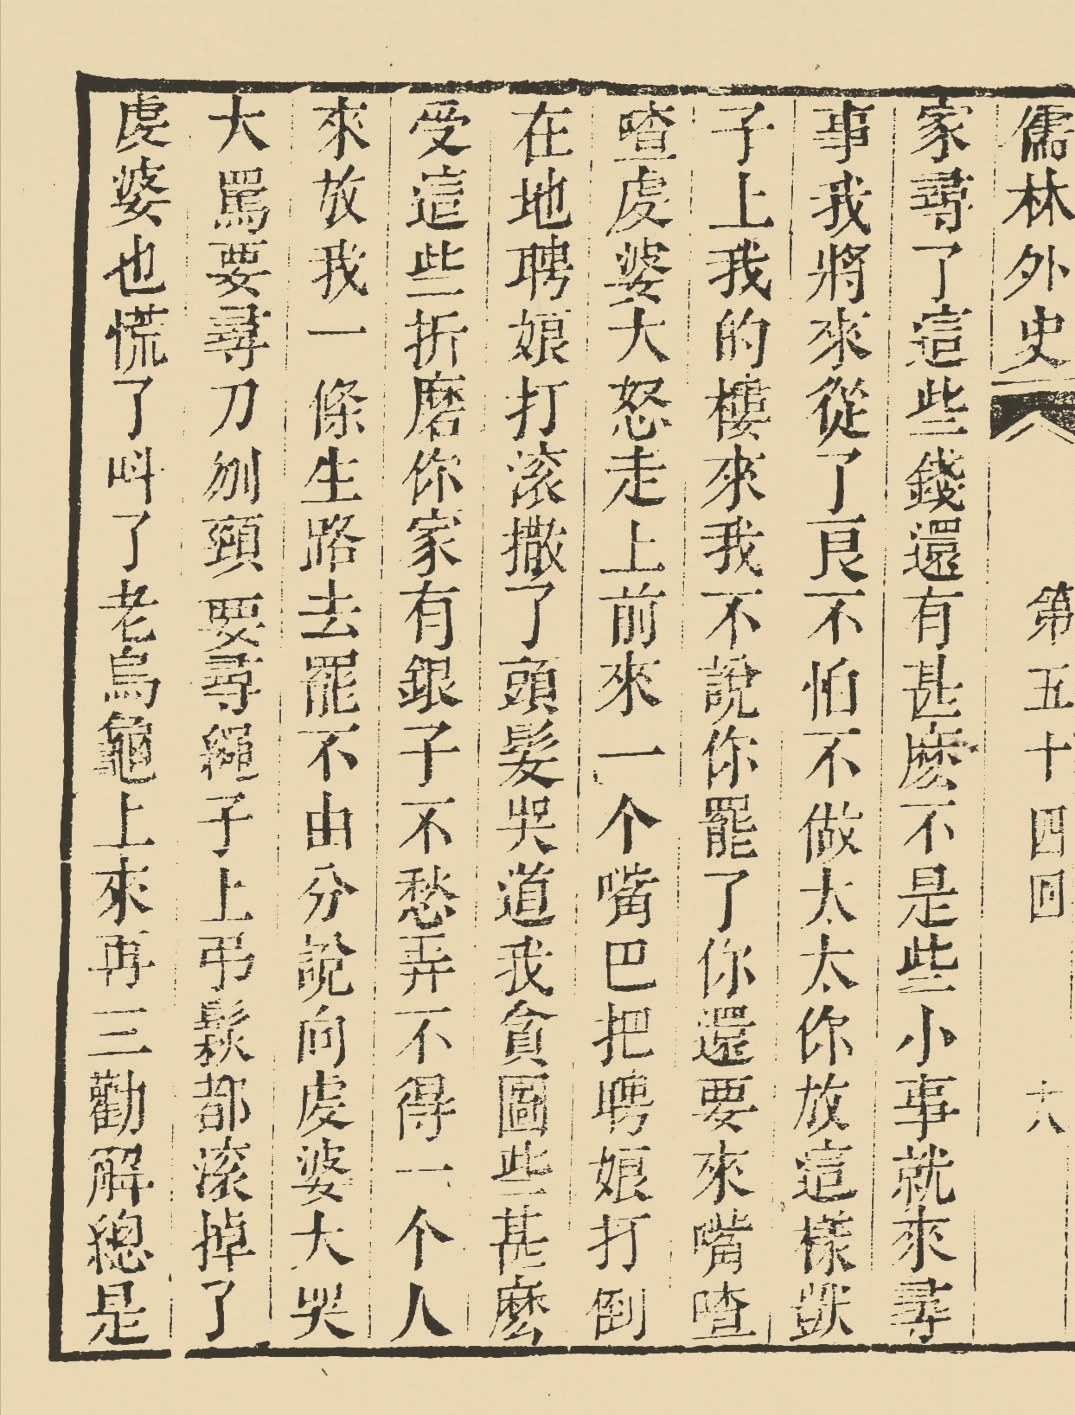 儒林外史 第五十四回
家尋了這些錢還有甚麽不是些小事就來尋
事我將來從了良不怕不做太太你放這樣獃
子上我的樓來我不說你罷了你還要來嘴喳
喳虔婆大怒走上前來一个嘴巴把聘娘打倒
在地聘娘打滚撒了頭髮哭道我貪圖些甚麽
受這些折磨你家有銀子不愁弄不得一个人
來放我一條生路去罷不由分說向虔婆大哭
大罵要尋刀刎頸要尋繩子上弔鬏都滚掉了
虔婆也慌了呌了老烏龜上來再三勸解總是